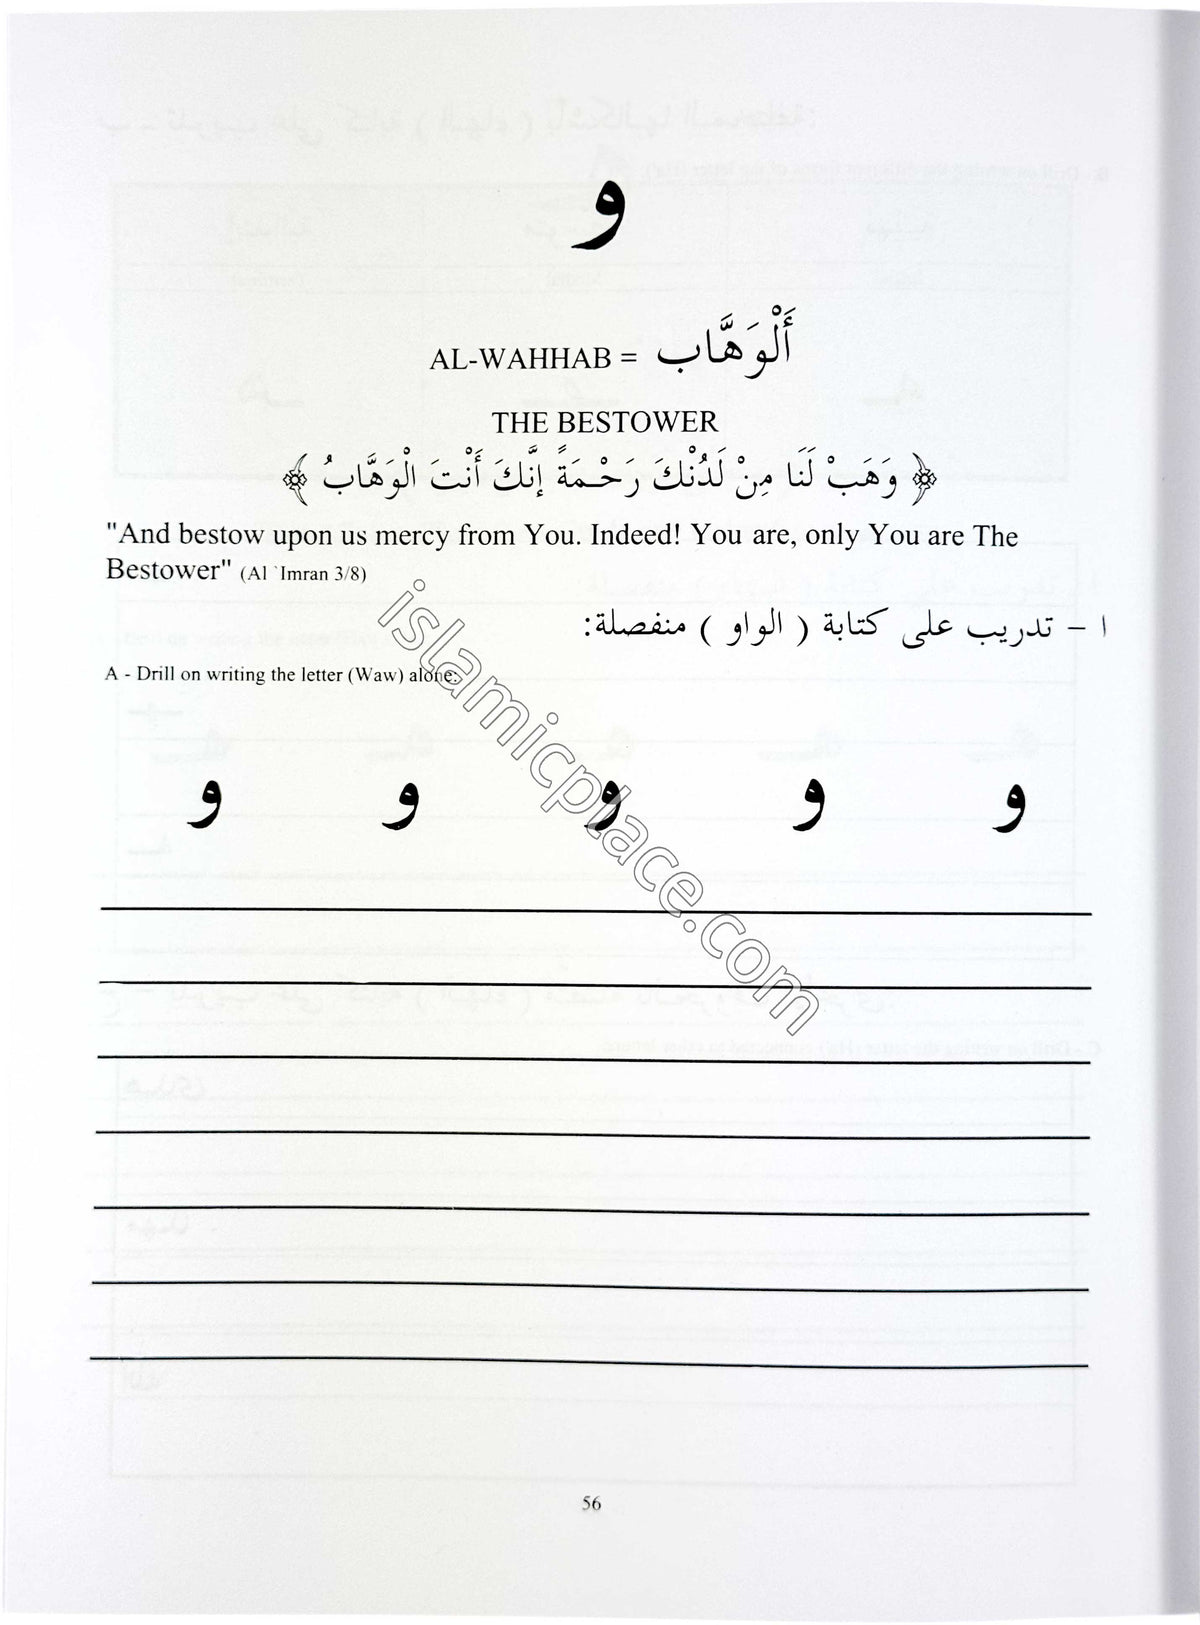 و
AL-WAHHAB = أَلْوَهَّاب
THE BESTOWER
﴿ وَهَبْ لَنَا مِنْ لَدُنْكَ رَحْمَةً إِنَّكَ أَنْتَ الْوَهَّابُ ﴾
"And bestow upon us mercy from You. Indeed! You are, only You are The
Bestower" (Al `Imran 3/8)
ا – تدريب على كتابة ( الواو ) منفصلة:
A - Drill on writing the letter (Waw) alone:
و و و و و
islamicplace.com
56